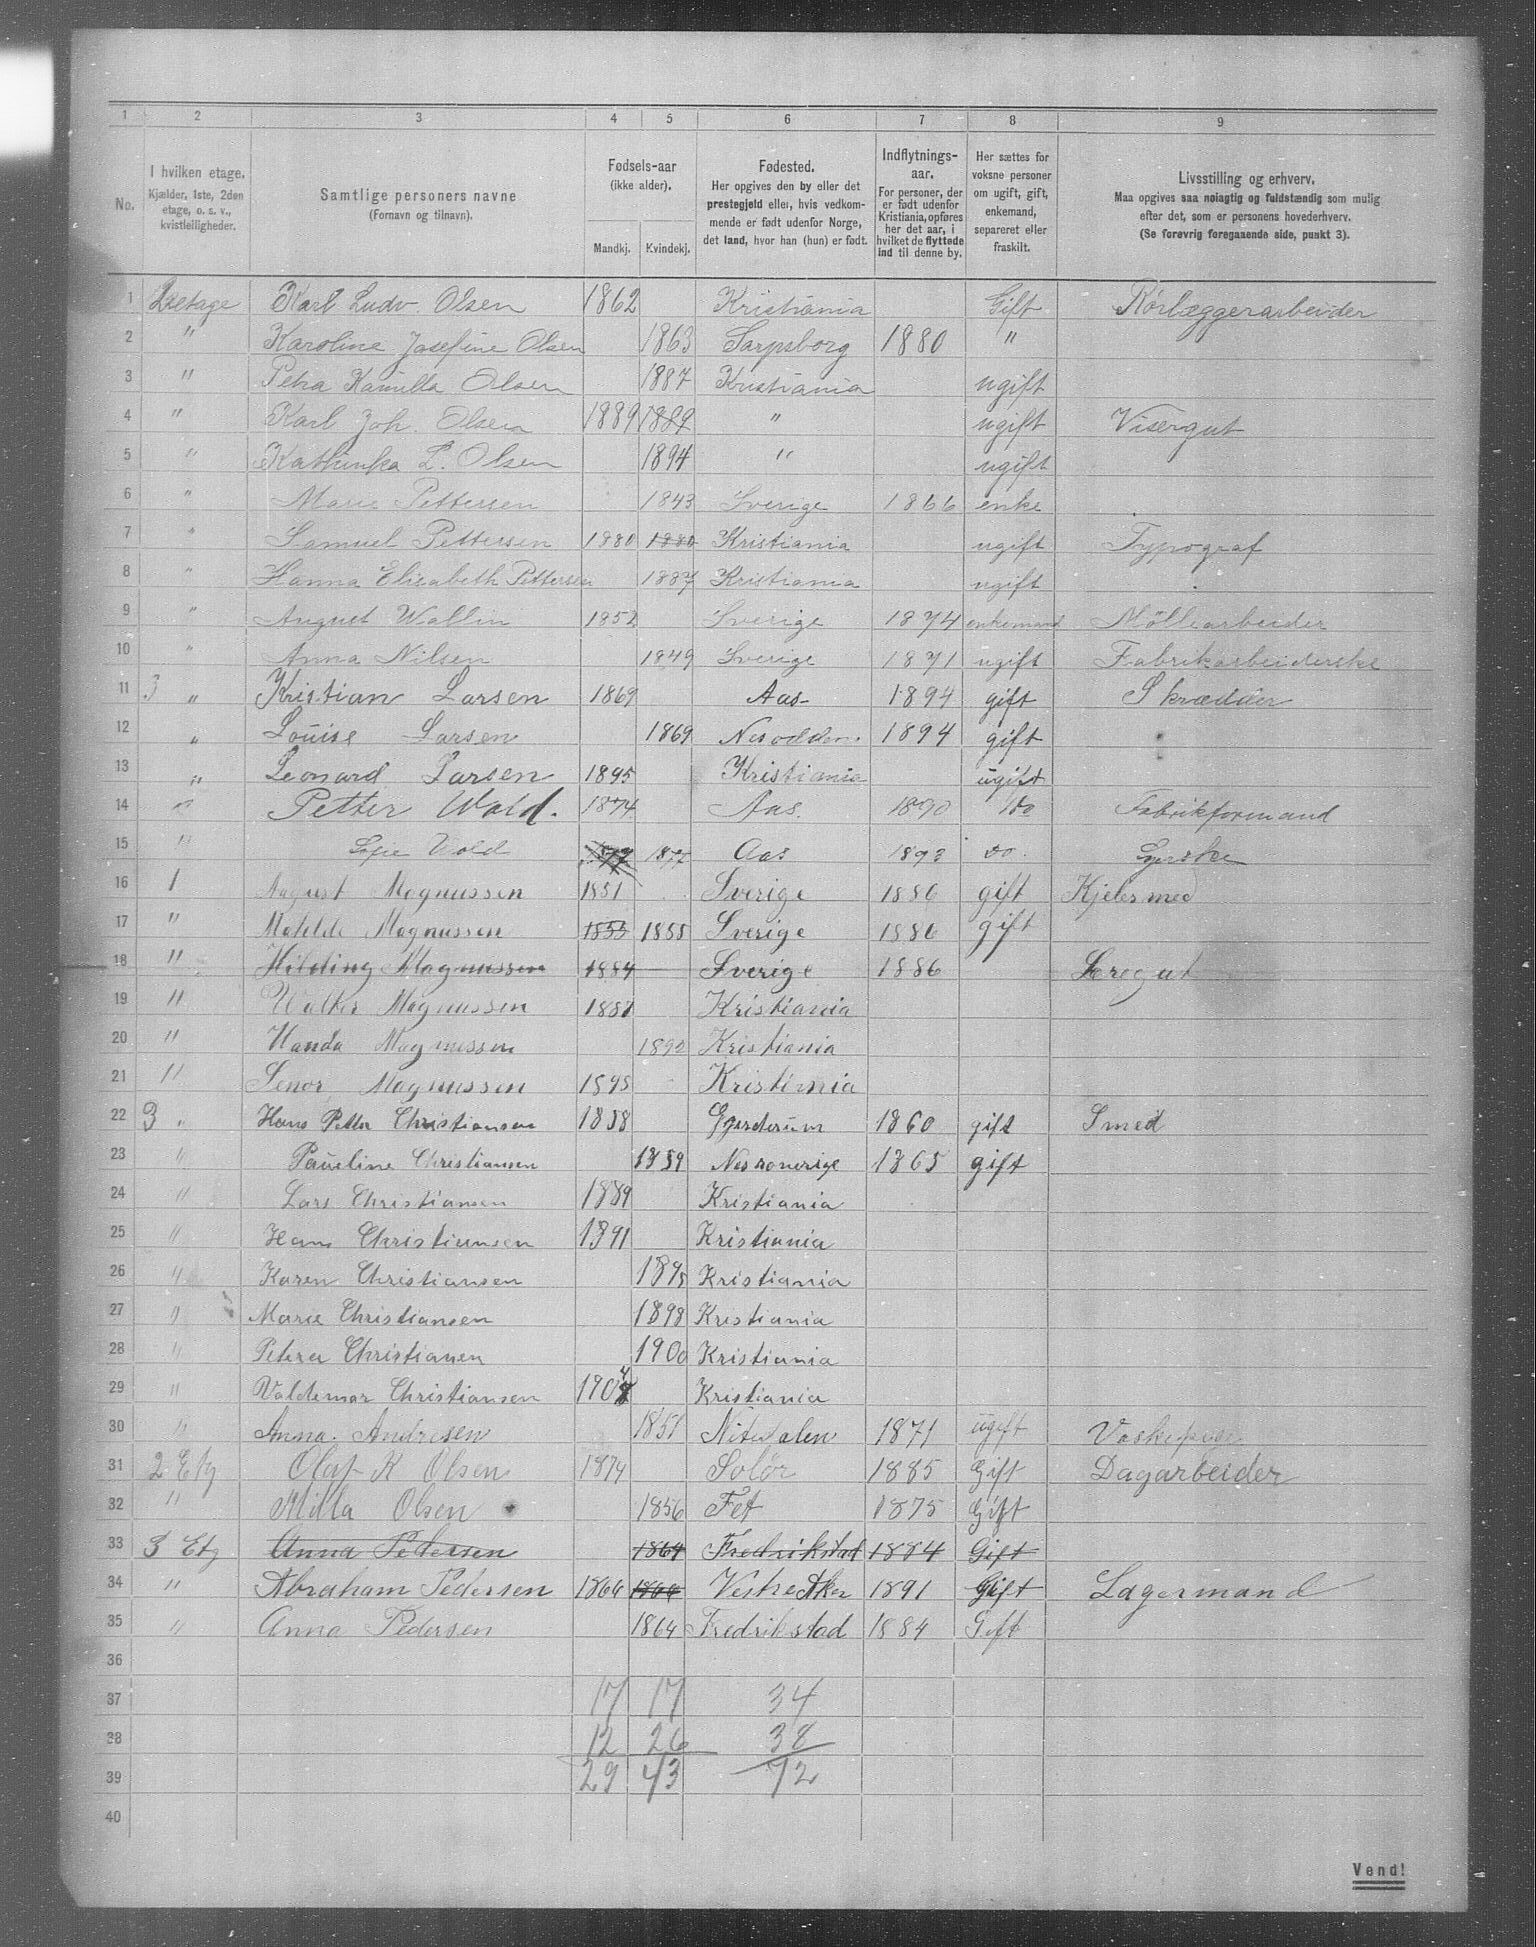 1 2 3 4 5 6 7 8 9
No.
I hvilken etage.
Kjælder, 1ste, 2den
etage, o. s. v.,
kvistleiligheder.
Samtlige personers navne
(Fornavn og tilnavn).
Fødsels-aar
(ikke alder).
Mandkj. Kvindekj.
Fødested.
Her opgives den by eller det
prestegjeld eller, hvis vedkom-
mende er født udenfor Norge,
det land, hvor han (hun) er født.
Indflytnings-
aar.
For personer, der
er født udenfor
Kristiania, opføres
her det aar, i
hvilket de flyttede
ind til denne by.
Her sættes for
voksne personer
om ugift, gift,
enkemand,
separeret eller
fraskilt.
Livsstilling og erhverv.
Maa opgives saa nøiagtig og fuldstændig som mulig
efter det, som er personens hovederhverv.
(Se forøvrig foregaaende side, punkt 3).
1 2 etage Karl Ludv. Olsen 1862 Kristiania Gift Rørlæggerarbeider
2 " Karoline Josefine Olsen 1863 Sarpsborg 1880 "
3 " Petra Kamilla Olsen 1887 Kristiania ugift
4 " Karl Joh. Olsen 1889 1889 " ugift Visergut
5 " Kathinka L. Olsen 1894 " ugift
6 " Marie Pettersen 1843 Sverige 1866 enke
7 " Samuel Pettersen 1880 1880 Kristiania ugift Typograf
8 " Hanna Elisabeth Pettersen 1887 Kristiania ugift
9 " August Wallin 1852 Sverige 1874 enkemand Møllearbeider
10 " Anna Nilsen 1849 Sverige 1871 ugift Fabrikarbeiderske
11 3 " Kristian Larsen 1869 Aas 1894 gift Skrædder
12 " Louise Larsen 1869 Nesodden. 1894 gift
13 " Leonard Larsen 1895 Kristiania ugift
14 " Petter Wold. 1874 Aas. 1890 do Fabrikformand
15 " Sofie Wold 1877 1877 Aas 1893 do. Syerske
16 1 August Magnussen 1851 Sverige 1886 gift Kjelesmed
17 " Matilde Magnussen 1855 1855 Sverige 1886 gift
18 " Hilding Magnussen 1884 Sverige 1886 Læregut
19 " Walter Magnussen 1887 Kristiania
20 " Wanda Magnussen 1892 Kristiania
21 " Senor Magnussen 1895 Kristiania
22 3 " Hans Petter Christiansen 1858 Gjerderum 1860 gift Smed
23 " Pauline Christiansen 1859 Nesromerige 1865 gift
24 " Lars Christiansen 1889 Kristiania
25 " Hans Christiansen 1891 Kristiania
26 " Karen Christiansen 1895 Kristiania
27 " Marie Christiansen 1898 Kristiania
28 " Petra Christiansen 1900 Kristiania
29 " Valdemar Christiansen 1904 Kristiania
30 " Anna Andresen 1851 Nitedalen 1871 ugift Vaskepige
31 2 Etg Olaf K Olsen 1874 Solør 1885 Gift Dagarbeider
32 " Milla Olsen 1856 Fet 1875 Gift
33 3 Etg Anna Pedersen 1864 Fredrikstad 1884 Gift
34 " Abraham Pedersen 1866 1866 Vestre Aker 1891 Gift Lagermand
35 " Anna Pedersen 1864 Fredrikstad 1884 Gift
36
37 17 17 34
38 12 26 38
39 29 43 72
40
Vend!